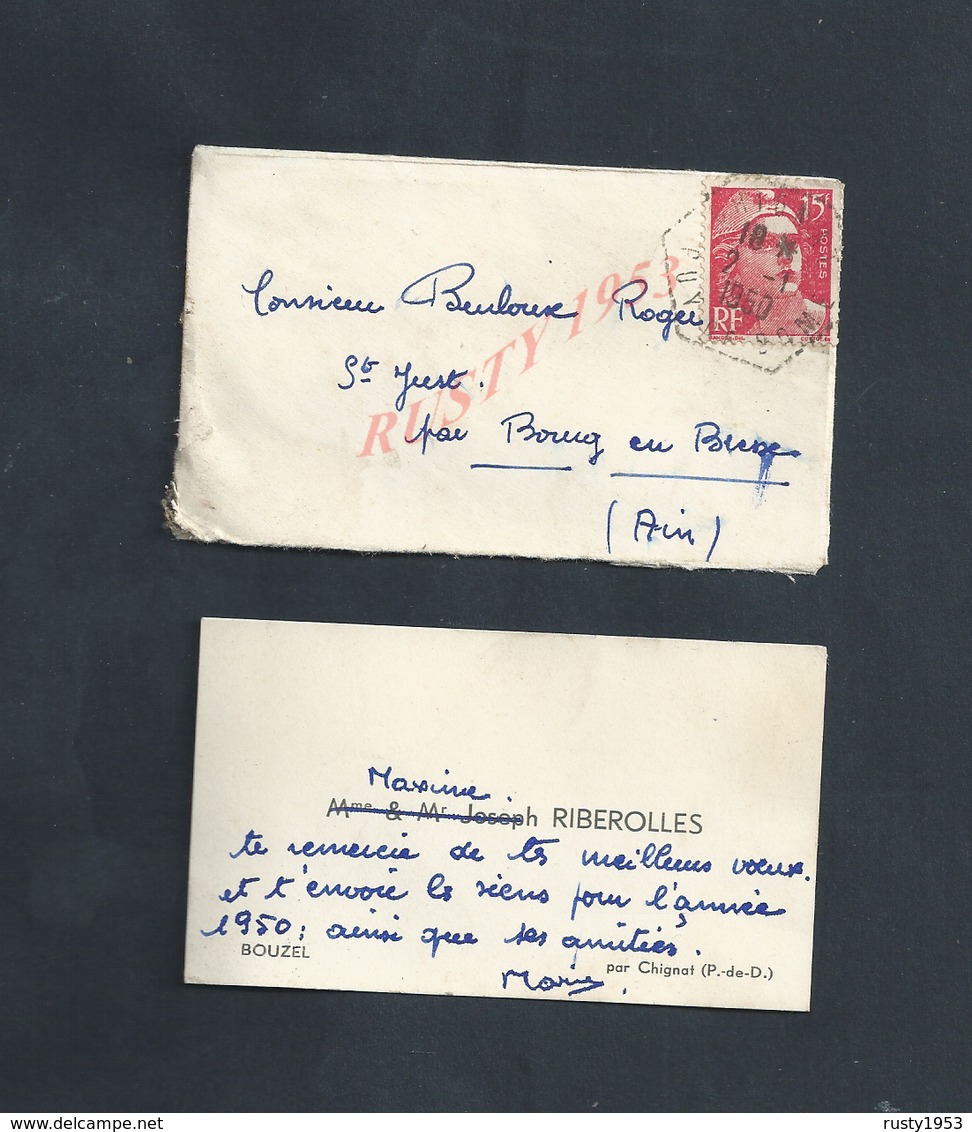 Monsieur Berloux Roger
St Just.
par Bourg en Bresse
(Ain)
15F
POSTES
RF
18 *
2 -1
1950
RUSTY 1953
Maxime.
Mme & Mr Joseph RIBEROLLES
te remercie de tes meilleurs vœux.
et t'envoie les siens pour l'année
1950; ainsi que ses amitiés.
BOUZEL
par Chignat (P.-de-D.)
delcampe.net
rusty1953